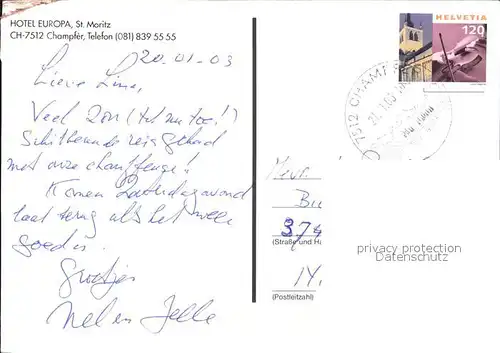 HOTEL EUROPA, St. Moritz
CH-7512 Champfèr, Telefon (081) 839 55 55
HELVETIA
120
7512 CHAMPF
20-01-03
Lieve
Veel zon (tot nu toe!)
Schitterende reis gehad
met onze chauffeuse!
Komen zaterdagavond
laat terug als het weer
goed is.
Groetjes
Nel en Jelle
Mevr.
374
(Straße und Ha
(Postleitzahl)
privacy protection
Datenschutz